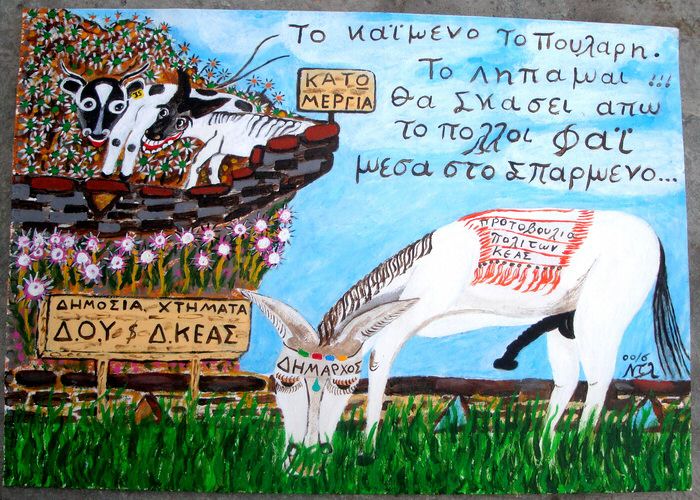 Το καϊμενο το πουλαρη.
Το ληπαμαι !!!
Θα σκασει απω
το πολλοι φαϊ
μεσα στο σπαρμενο...
ΚΑΤΟ
ΜΕΡΓΙΑ
ΠΡΟΤΟΒΟΥΛΙΑ
ΠΟΛΙΤΩΝ
ΚΕΑΣ
ΔΗΜΟΣΙΑ ΧΤΗΜΑΤΑ
Δ.Ο.Υ $ Δ.ΚΕΑΣ
ΔΗΜΑΡΧΟΣ